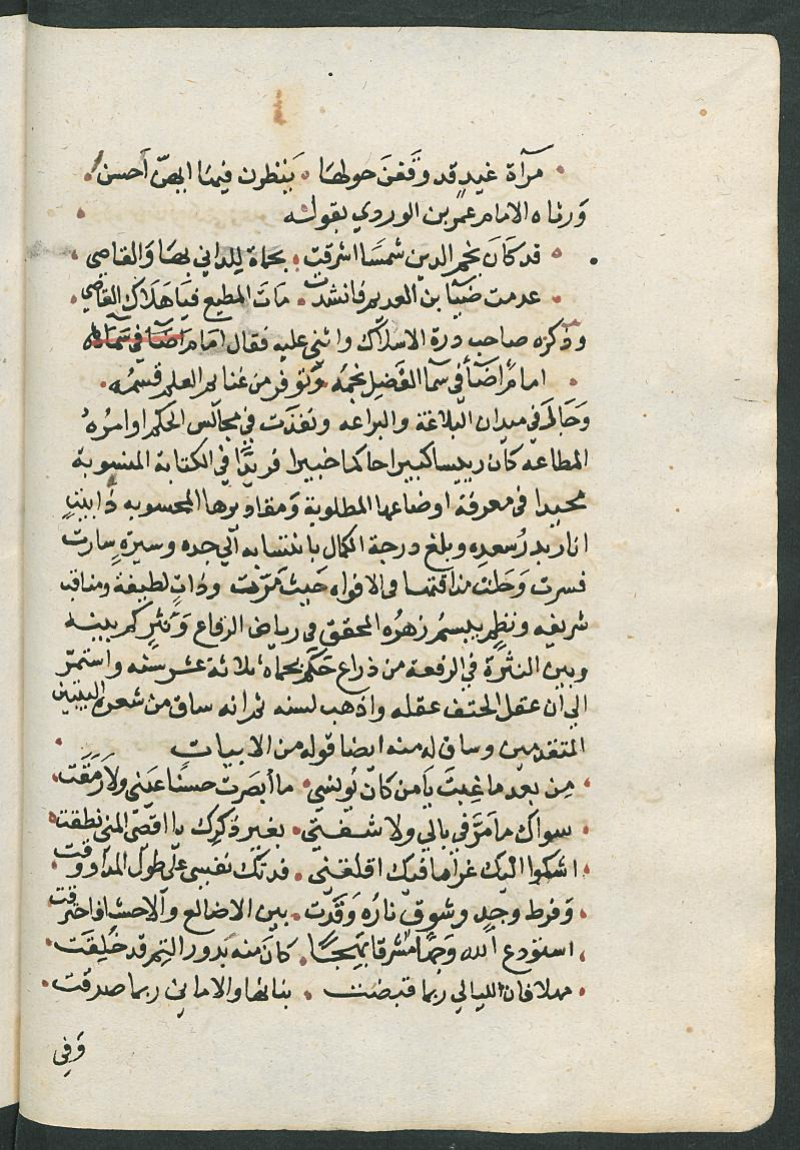 • مرآة غيدٍ قد وقفن حولها • ينظرن فيها ايهنّ أحسن •
ورثاه الامام عمر بن الوردي بقوله •
• قد كان نجم الدين شمسا اشرقت • بحماة للداني بها والقاصي •
• عدمت ضيا بن العديم فانشدت • مات المطيع فيا هلاك القاصي •
وذكره صاحب درة الاسلاك واثنى عليه فقال امام اضا في سما
• امام أضا في سما الفضل نجمه • وتوفر من غنايم العلم قسمه •
وجال في ميدان البلاغة والبراعه ونفذت في مجالس الحكم اوامره
المطاعه كان رييسا كبيرا حاكما خبيرا فريدا في الكتابة المنسوبة
مجيدا في معرفة اوضاعها المطلوبة ومقاديرها المحسوبه ذا بيتٍ
انار بدر سعده وبلغ درجة الكمال بانتسابه الى جده وسيرة سارت
فسرت وحلت مذاقتها في الافواه حيث مرّت وذاتٍ لطيفة ومناقب
شريفه ونظم يبسم زهره المحقق في رياض الرقاع ونثرٍ كم بينه
وبين النثرة في الرفعة من ذراع حكم بحماه ثلاثة عشر سنه واستمرّ
الى ان عقل الحتف عقله واذهب لسنه ثم انه ساق من شعره البيتين
المتقدمين وساق له منه ايضا قوله من الابيات •
• مِن بعد ما غبت يا من كان يونسني • ما أبصرت حسنا عيني ولا رمقت •
• سواك ما مرّ في بالي ولا شفتي • بغير ذكرك يا اقصى المنى نطقت •
• اشكوا اليك غراما فيك اقلقني • فدتك نفسي على طول المدا ووقت •
• وفرط وجدٍ وشوق ناره وقدت • بين الاضالع والاحشا فاحترقت •
• استودع الله وجها مشرقا بهجا • كان منه بدور التم قد خُلِقَت •
• مهلا فان الليالي ربما قبضت • بنانها والاماني ربما صدقت •
وفي